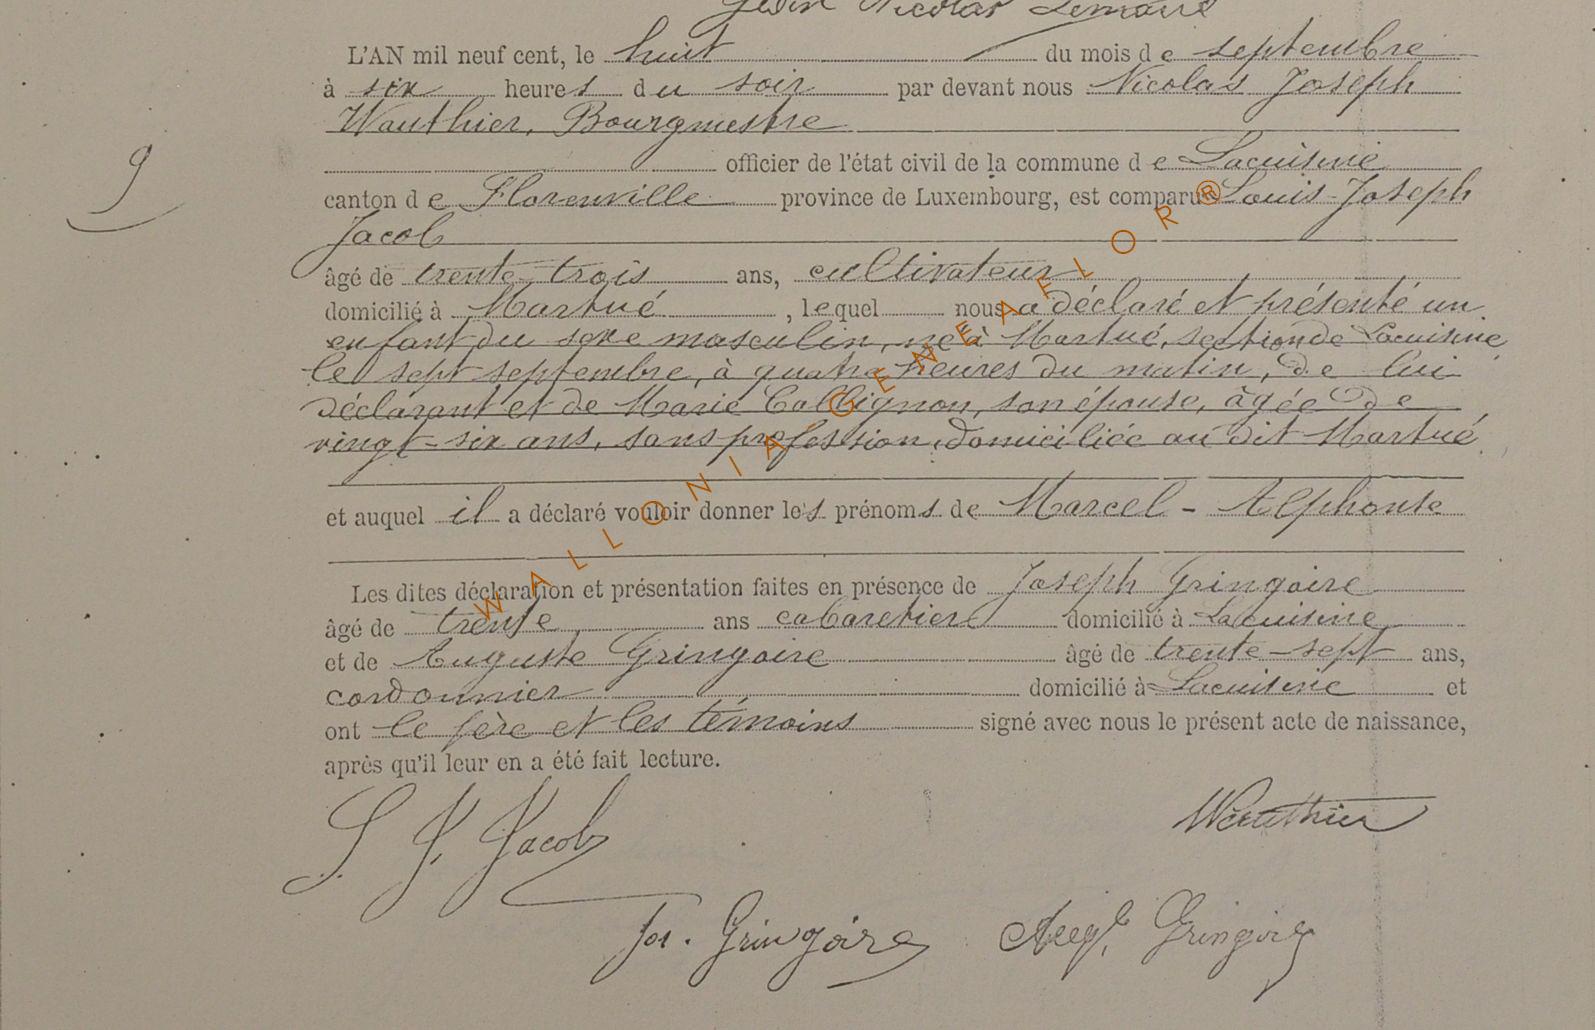 Jean Nicolas Lemaire
L'AN mil neuf cent, le huit du mois de septembre
à six heures du soir par devant nous Nicolas Joseph
Wauthier, Bourgmestre
officier de l'état civil de la commune de Lacuisine
canton de Florenville province de Luxembourg, est comparu Louis-Joseph
Jacob
âgé de trente-trois ans, cultivateur
domicilié à Martué, lequel nous a déclaré et présenté un
enfant du sexe masculin, né à Martué, section de Lacuisine,
le sept septembre, à quatre heures du matin, de lui
déclarant et de Marie Collignon, son épouse, âgée de
vingt-six ans, sans profession, domiciliée au dit Martué
et auquel il a déclaré vouloir donner les prénoms de Marcel-Alphonse
Les dites déclaration et présentation faites en présence de Joseph Gringoire
âgé de trente ans cabaretier domicilié à Lacuisine
et de Auguste Gringoire âgé de trente-sept ans,
cordonnier domicilié à Lacuisine et
ont le père et les témoins signé avec nous le présent acte de naissance,
après qu'il leur en a été fait lecture.
9
L. J. Jacob
Wauthier
Jos. Gringoire
Aug. Gringoire
WALLONIA-GENEAFLOR®